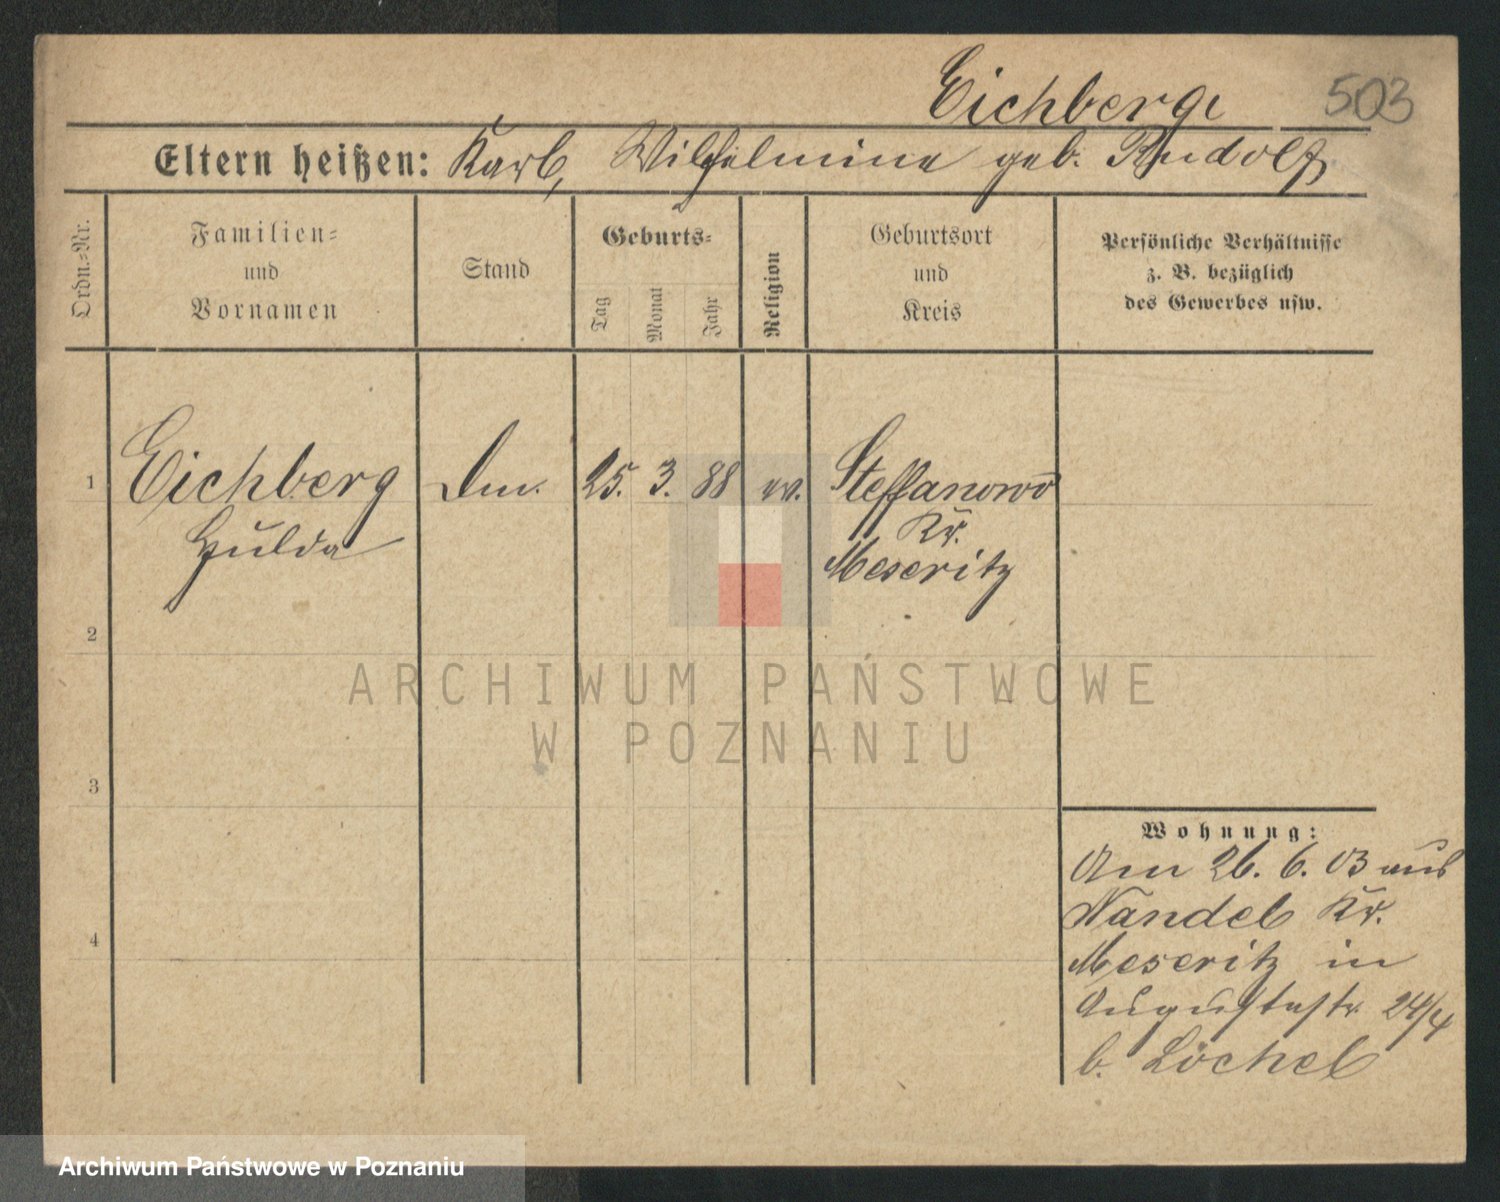 Eichberg
503
Eltern heißen: Karl, Wilhelmine geb. Rudolf
Ordn.=Nr.
Familien=
und
Vornamen
Stand
Geburts=
Tag
Monat
Jahr
Religion
Geburtsort
und
Kreis
Persönliche Verhältnisse
z. B. bezüglich
des Gewerbes usw.
1
Eichberg
Hulda
25. 3. 88
ev.
Steffanowo
Kr.
Meseritz
2
3
4
ARCHIWUM PAŃSTWOWE
W POZNANIU
Wohnung:
Am 26. 6. 03 aus
Nandel Kr.
Meseritz in
Augustastr. 24/4
b. Löchel
Archiwum Państwowe w Poznaniu